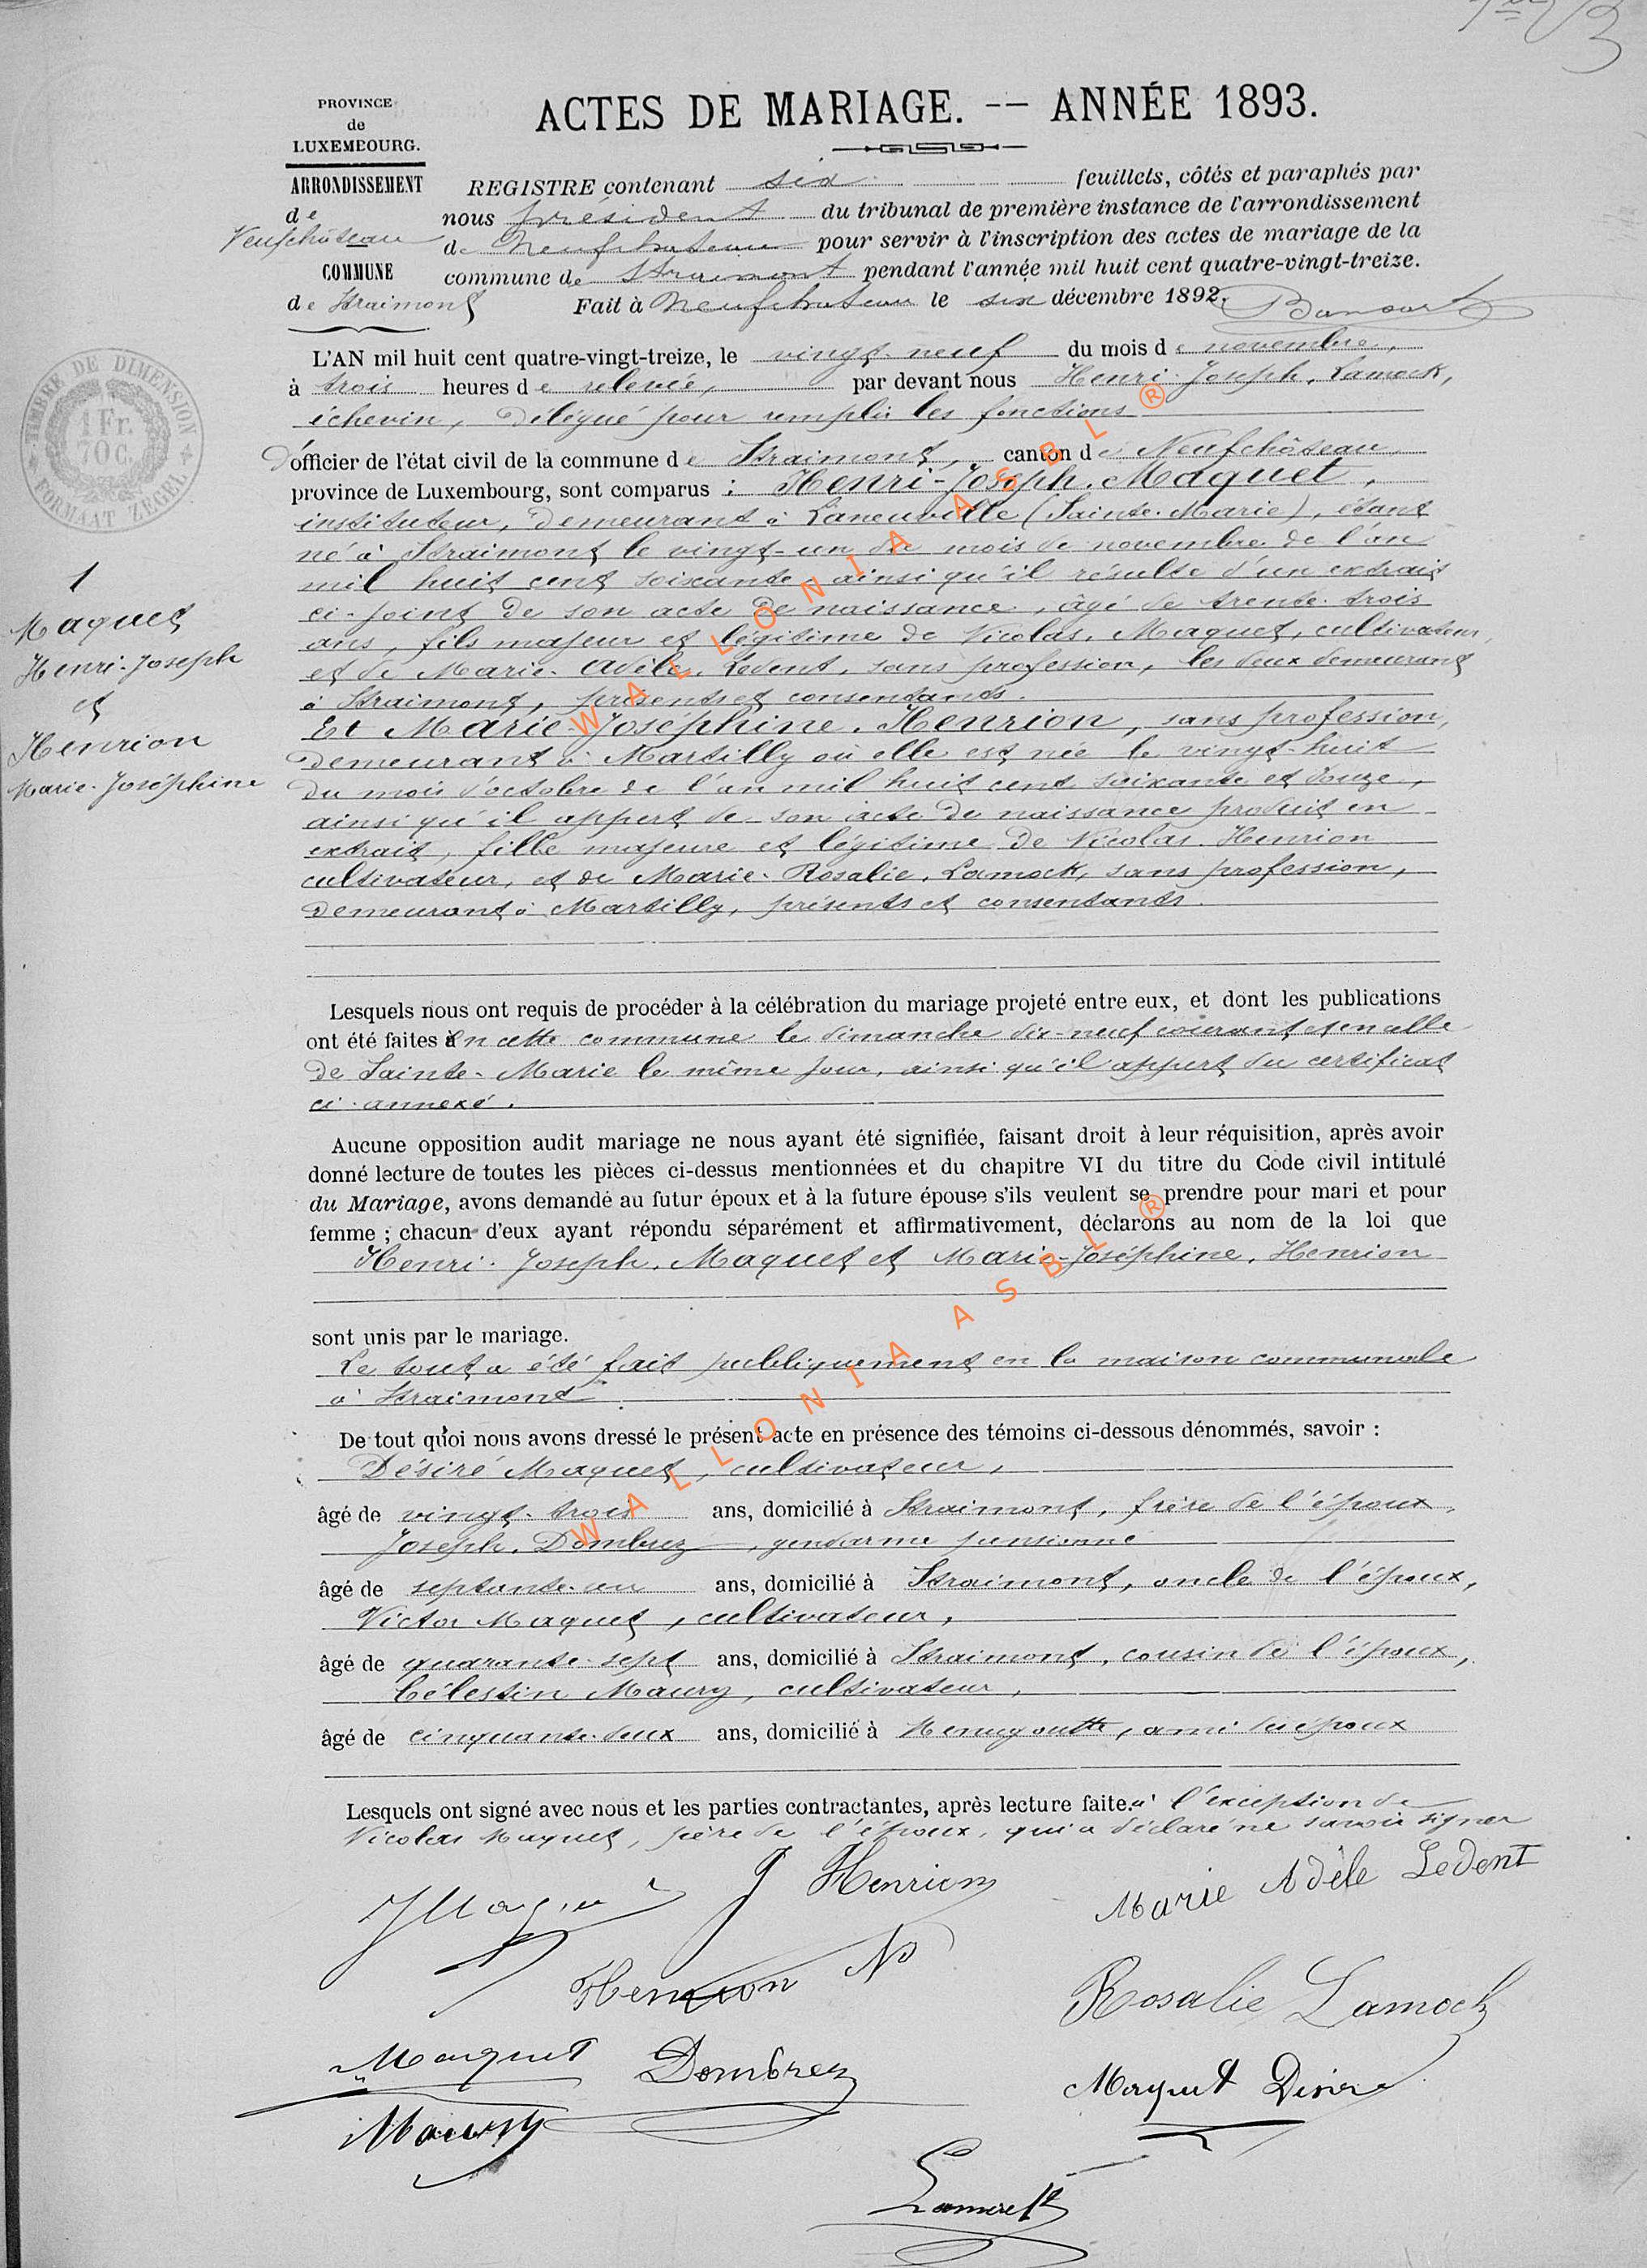 PROVINCE
de
LUXEMBOURG.
ARRONDISSEMENT
de
Neufchâteau
COMMUNE
de Straimont
TIMBRE DE DIMENSION
1 Fr.
70 C.
FORMAAT ZEGEL
ACTES DE MARIAGE. -- ANNÉE 1893.
REGISTRE contenant six feuillets, côtés et paraphés par
nous président du tribunal de première instance de l'arrondissement
de Neufchateau pour servir à l'inscription des actes de mariage de la
commune de Straimont pendant l'année mil huit cent quatre-vingt-treize.
Fait à Neufchateau le six décembre 1892.
1
Maquet
Henri-Joseph
et
Henrion
Marie-Joséphine
L'AN mil huit cent quatre-vingt-treize, le vingt-neuf du mois de novembre,
à trois heures de relevée, par devant nous Henri-Joseph, Lamock,
échevin, délégué pour remplir les fonctions
d'officier de l'état civil de la commune de Straimont, canton de Neufchâteau
province de Luxembourg, sont comparus : Henri-Joseph. Maquet,
instituteur, demeurant à Laneuville (Sainte-Marie), étant
né à Straimont le vingt-un du mois de novembre de l'an
mil huit cent soixante, ainsi qu'il résulte d'un extrait
ci-joint de son acte de naissance, âgé de trente-trois
ans, fils majeur et légitime de Nicolas, Maquet, cultivateur,
et de Marie-Adèle, Ledent, sans profession, les deux demeurant
à Straimont, présents et consentants.
Et Marie-Joséphine. Henrion, sans profession,
demeurant à Martilly où elle est née le vingt-huit
du mois d'octobre de l'an mil huit cent soixante et douze,
ainsi qu'il appert de son acte de naissance produit en
extrait, fille majeure et légitime de Nicolas. Henrion
cultivateur, et de Marie-Rosalie. Lamock, sans profession,
demeurant à Martilly, présents et consentants.
Lesquels nous ont requis de procéder à la célébration du mariage projeté entre eux, et dont les publications
ont été faites en cette commune le dimanche dix-neuf courant et en celle
de Sainte-Marie le même jour, ainsi qu'il appert du certificat
ci-annexé.
Aucune opposition audit mariage ne nous ayant été signifiée, faisant droit à leur réquisition, après avoir
donné lecture de toutes les pièces ci-dessus mentionnées et du chapitre VI du titre du Code civil intitulé
du Mariage, avons demandé au futur époux et à la future épouse s'ils veulent se prendre pour mari et pour
femme ; chacun d'eux ayant répondu séparément et affirmativement, déclarons au nom de la loi que
Henri-Joseph. Maquet et Marie-Joséphine. Henrion
sont unis par le mariage.
Le tout a été fait publiquement en la maison communale
à Straimont.
De tout quoi nous avons dressé le présent acte en présence des témoins ci-dessous dénommés, savoir :
Désiré Maquet, cultivateur,
âgé de vingt-trois ans, domicilié à Straimont, frère de l'époux,
Joseph. Dombrez, gendarme pensionné
âgé de septante-un ans, domicilié à Straimont, oncle de l'époux,
Victor Maquet, cultivateur,
âgé de quarante-sept ans, domicilié à Straimont, cousin de l'époux,
Célestin Maury, cultivateur,
âgé de cinquante-deux ans, domicilié à Menugoutte, ami de l'époux
Lesquels ont signé avec nous et les parties contractantes, après lecture faite à l'exception de
Nicolas Maquet, père de l'époux, qui a déclaré ne savoir signer
J Henrion
Marie Adèle Ledent
Henrion N
Rosalie Lamock
Maquet
Dombrez
Maquet Désiré
Maury
Lamock
WALLONIA ASBL ®
WALLONIA ASBL ®